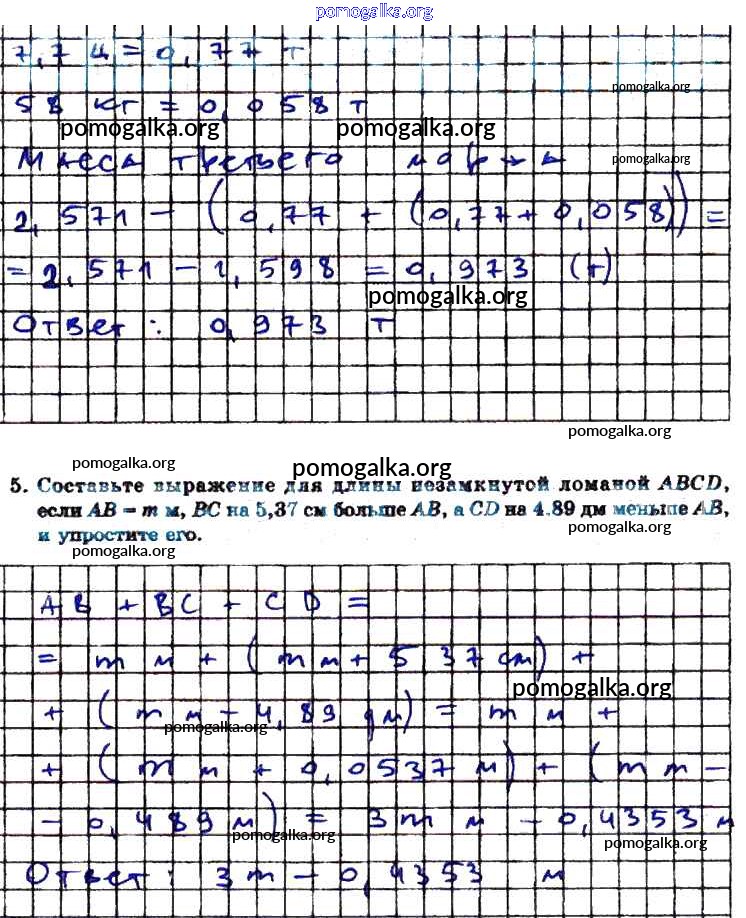 pomogalka.org
7,7 ц = 0,77 т
pomogalka.org
58 кг = 0,058 т
pomogalka.org pomogalka.org
Масса третьего моржа
pomogalka.org
2,571 - (0,77 + (0,77 + 0,058)) =
= 2,571 - 1,598 = 0,973 (т)
pomogalka.org
Ответ: 0,973 т
pomogalka.org
pomogalka.org pomogalka.org
5. Составьте выражение для длины незамкнутой ломаной ABCD,
если AB = m м, BC на 5,37 см больше AB, а CD на 4,89 дм меньше AB,
и упростите его.
pomogalka.org pomogalka.org
AB + BC + CD =
= m м + (m м + 5 37 см) +
pomogalka.org
+ (m м - 4,89 дм) = m м +
pomogalka.org
+ (m м + 0,0537 м) + (m м -
- 0,489 м) = 3m м - 0,4353 м
pomogalka.org pomogalka.org
Ответ: 3m - 0,4353 м